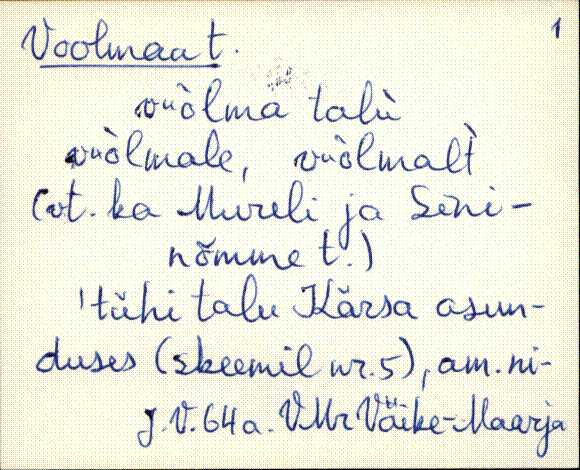 1
Voolmaa t.
vuòlma talù
vuòlmale, vuòlmalt̀
(vt. ka Mureli ja Seni-
nõmme t.)
'tühi talu Kärsa asun-
duses (skeemil nr. 5), am. ni-
J.V. 64 a. VMr Väike-Maarja